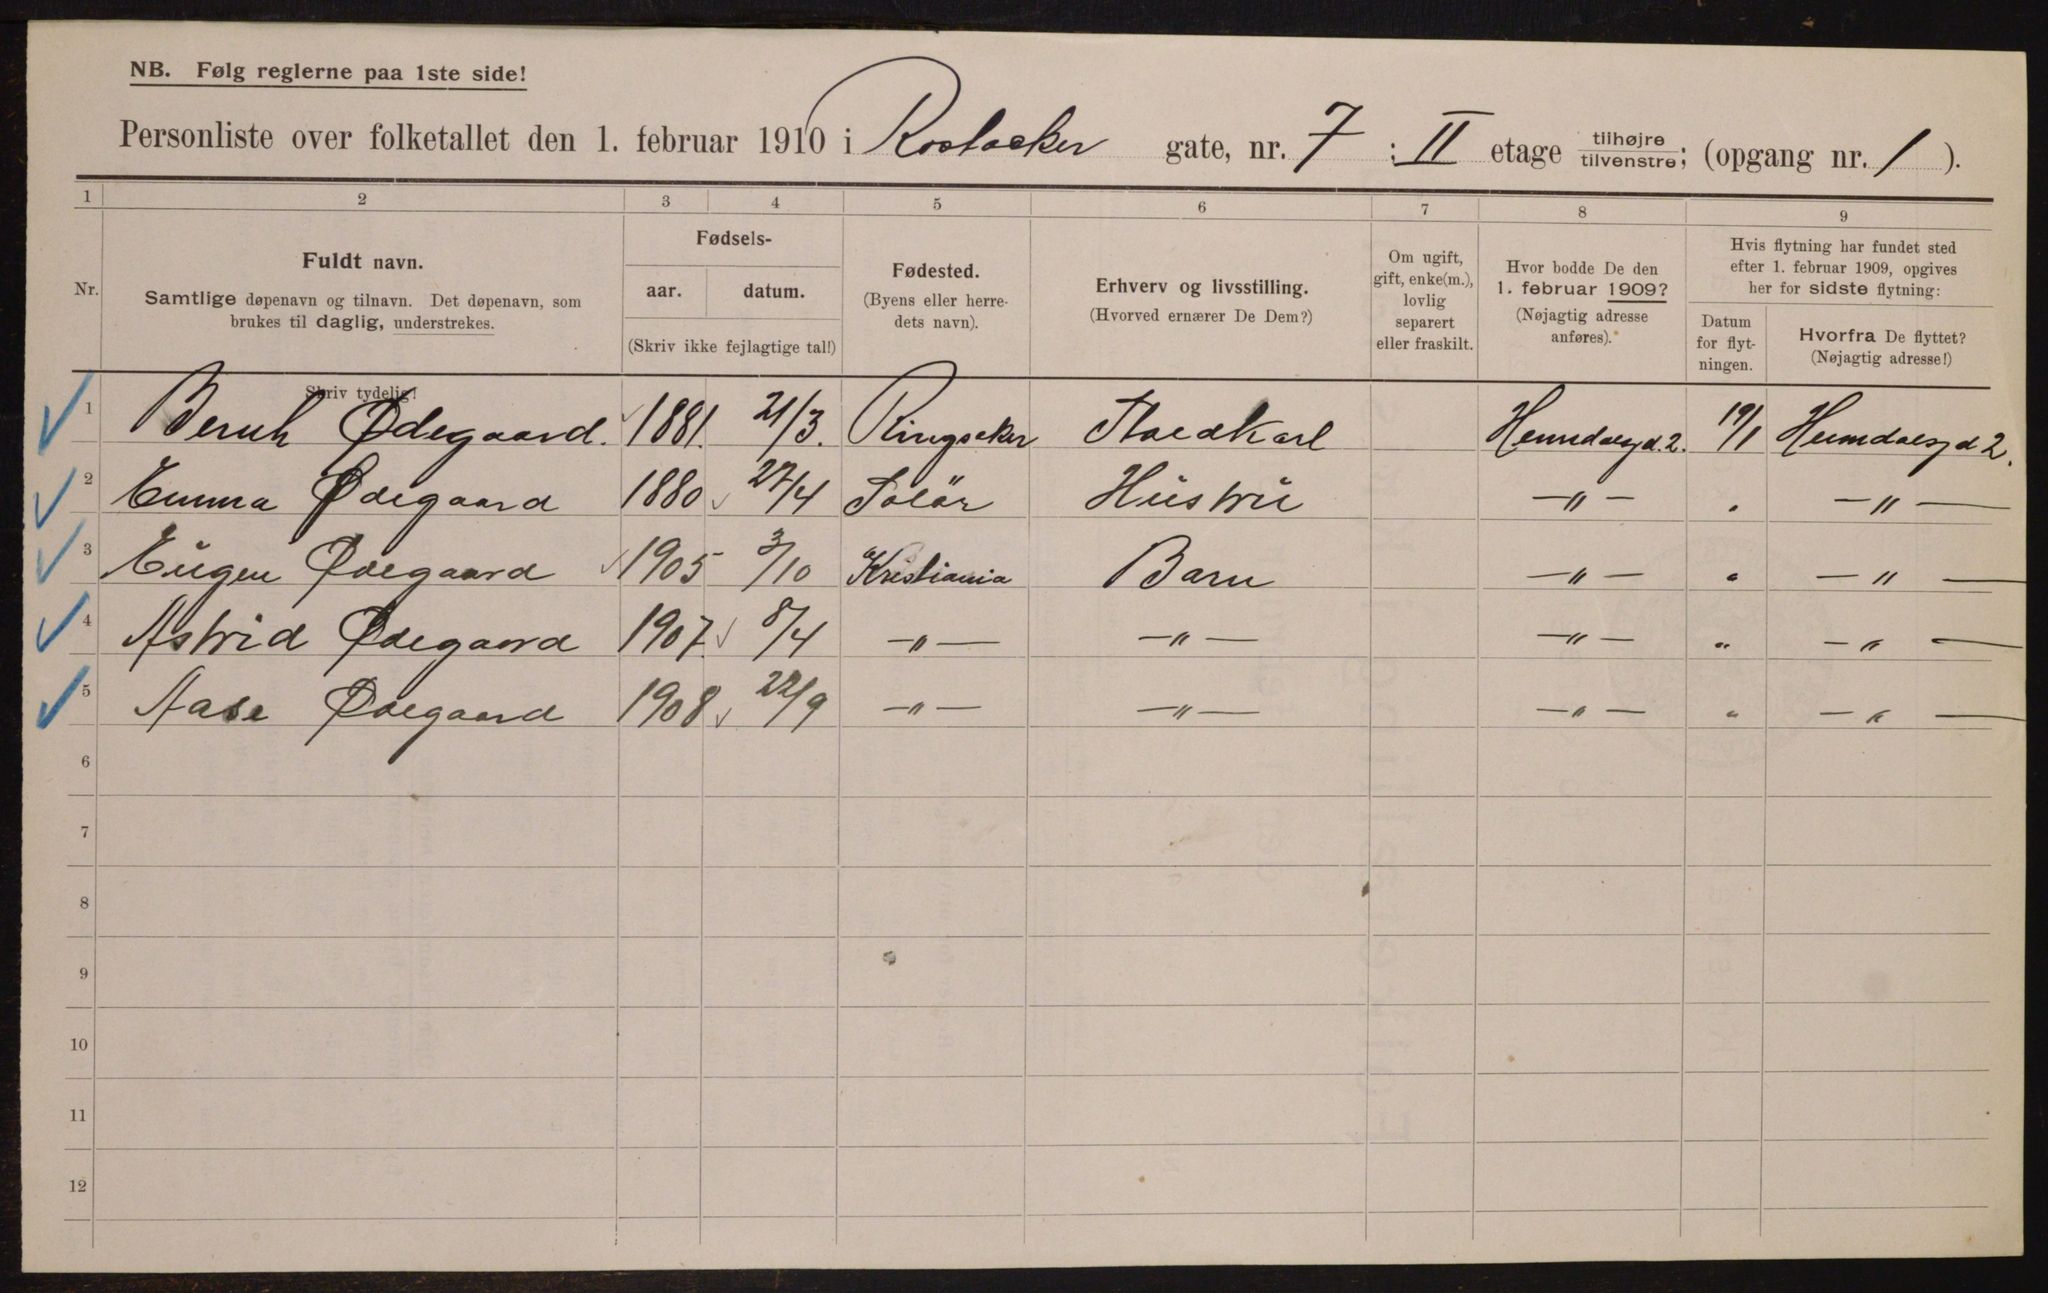 NB. Følg reglerne paa 1ste side!
Personliste over folketallet den 1. februar 1910 i Rostocker gate, nr. 7 : II etage tilhøjre tilvenstre; (opgang nr. 1 ).
1 2 3 4 5 6 7 8 9
Nr.
Fuldt navn.
Samtlige døpenavn og tilnavn. Det døpenavn, som
brukes til daglig, understrekes.
Skriv tydelig!
Fødsels-
aar. datum.
(Skriv ikke fejlagtige tal!)
Fødested.
(Byens eller herre-
dets navn).
Erhverv og livsstilling.
(Hvorved ernærer De Dem?)
Om ugift,
gift, enke(m.),
lovlig
separert
eller fraskilt.
Hvor bodde De den
1. februar 1909?
(Nøjagtig adresse
anføres).
Hvis flytning har fundet sted
efter 1. februar 1909, opgives
her for sidste flytning:
Datum
for flyt-
ningen.
Hvorfra De flyttet?
(Nøjagtig adresse!)
1 Ødegaard. 1881. 21/3. Ringsaker 2. 19/1 2.
2 Emma Ødegaard 1880 27/4 Solör Hustru —"— " —"—
3 Eugen Ødegaard 1905 3/10 Kristiania Barn —"— " —"—
4 Astrid Ødegaard 1907. 8/4 —"— —"— —"— " —"—
5 Aase Ødegaard 1908 22/9 —"— —"— —"— " —"—
6
7
8
9
10
11
12